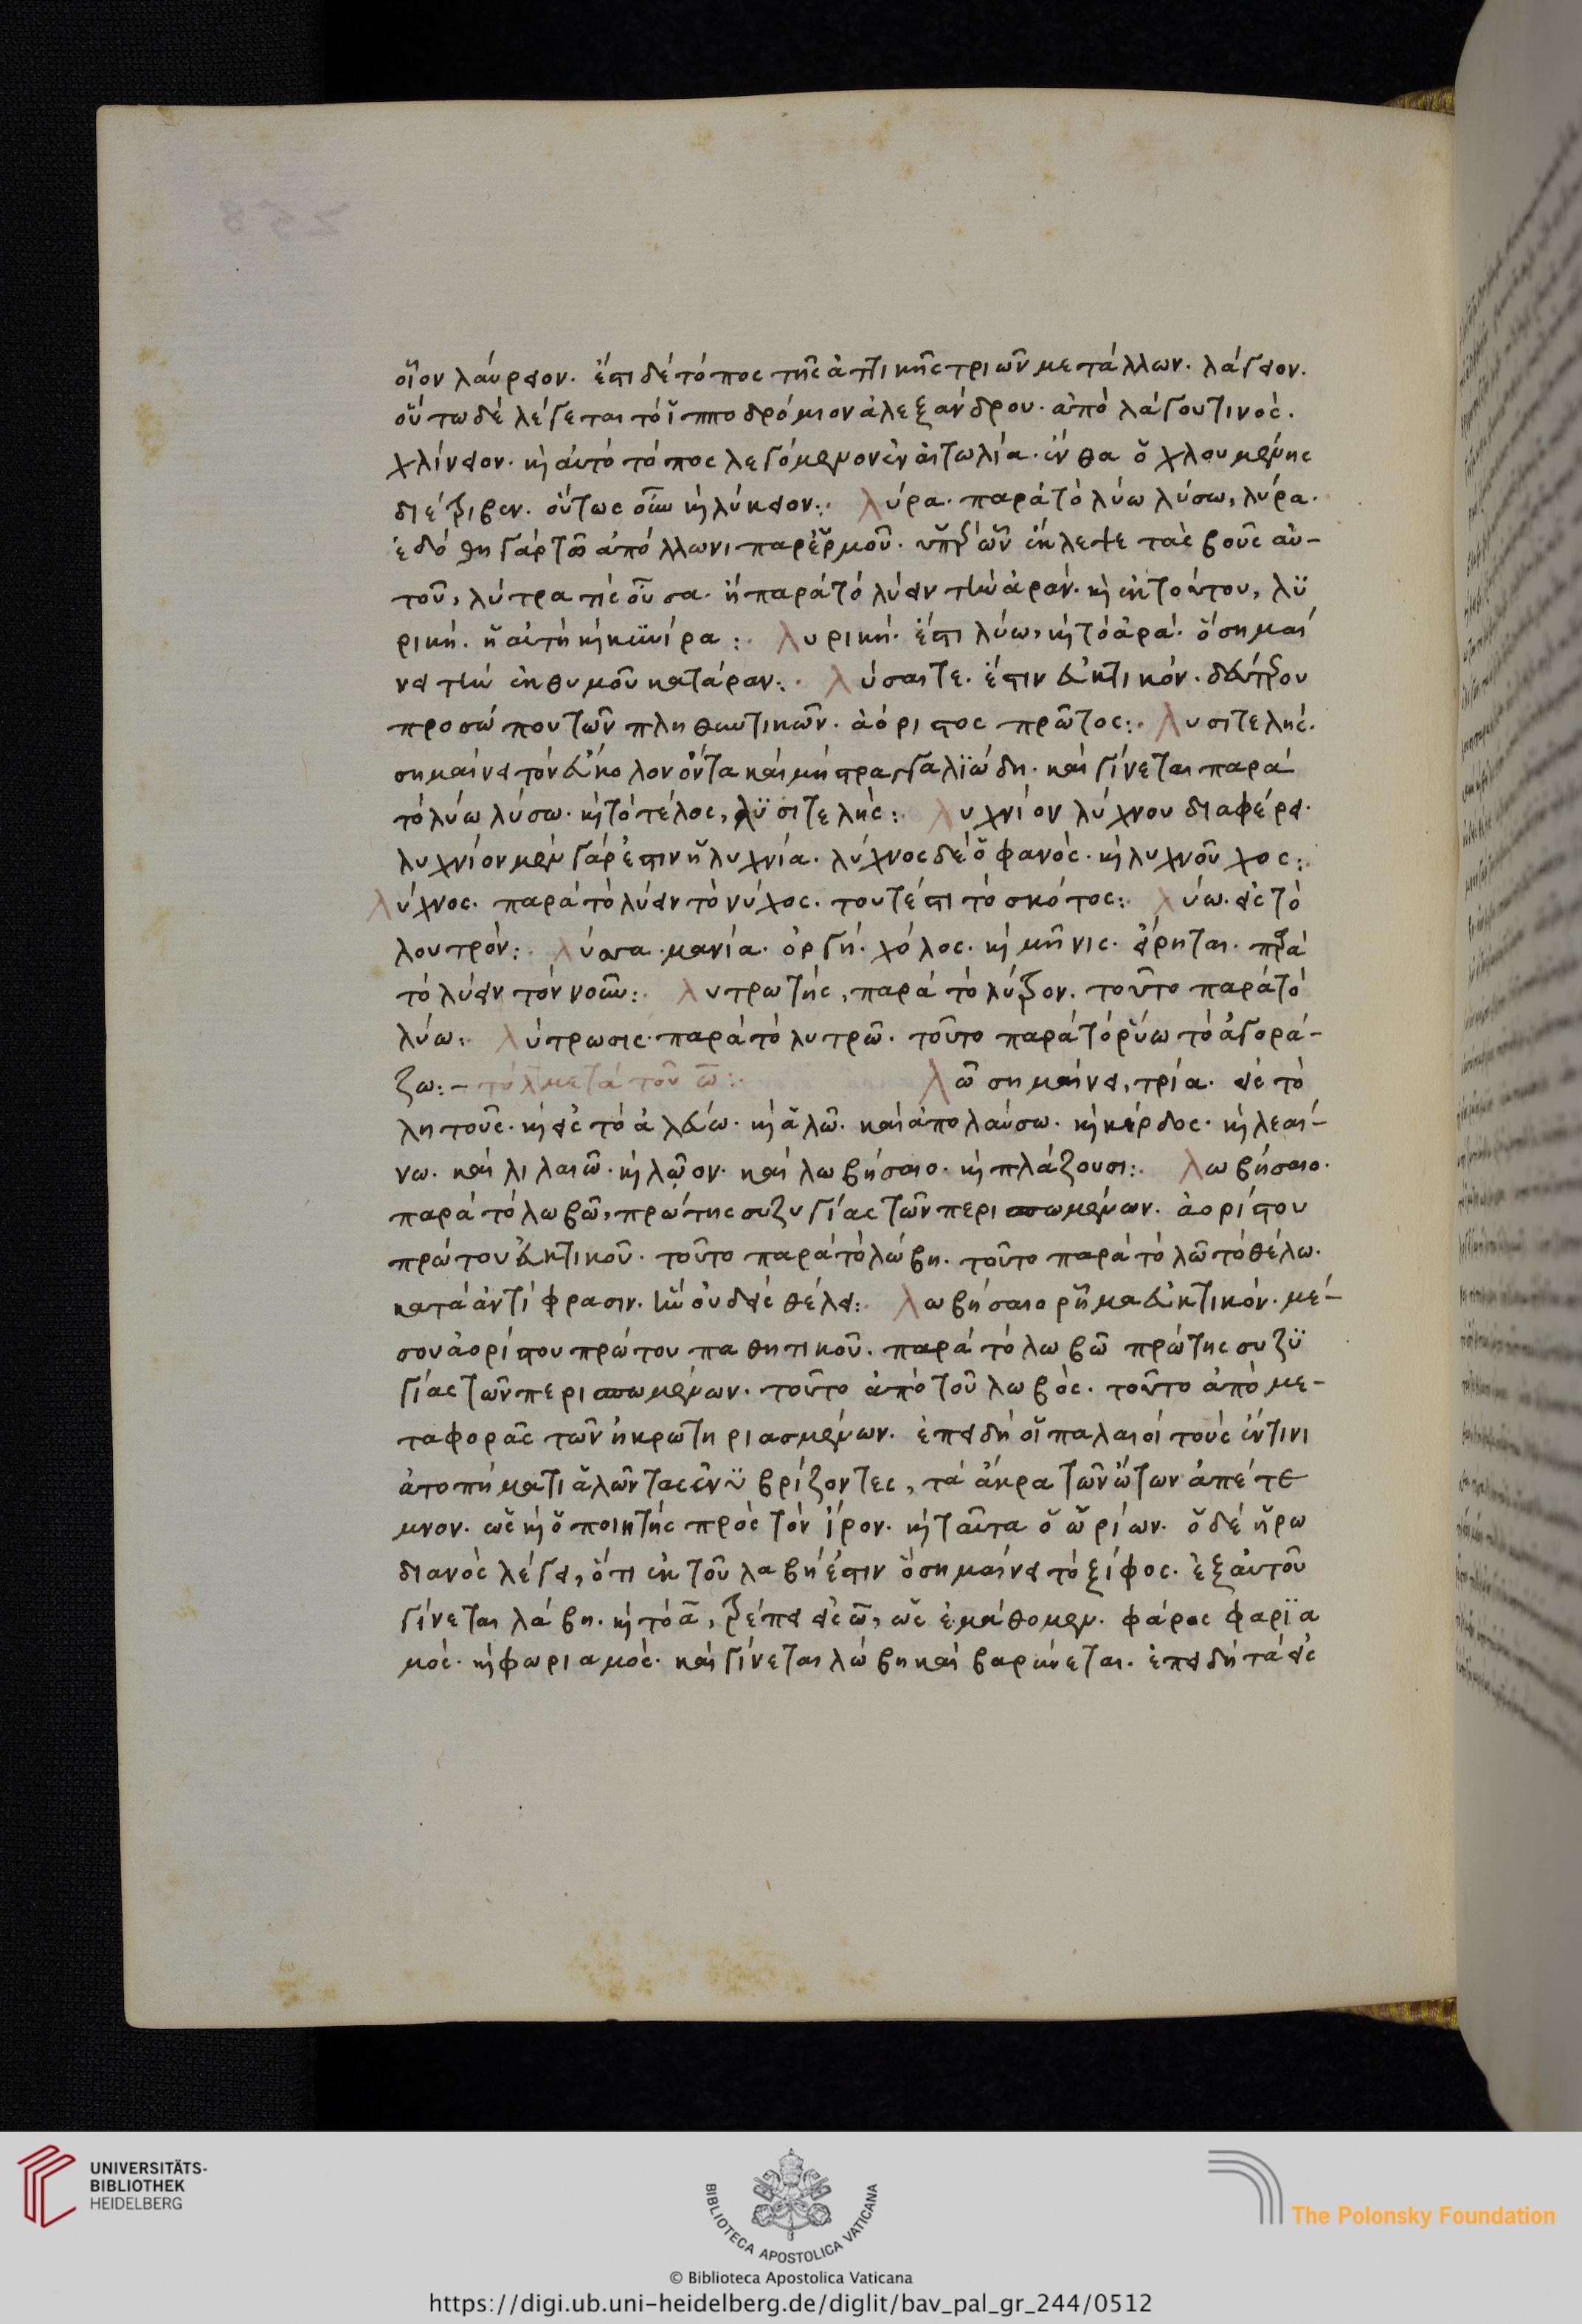 οἷον λαύρειον. ἔστι δὲ τόπος τῆς ἀττικῆς τριῶν μετάλλων. λάγειον.
οὕτω δὲ λέγεται τὸ ἱπποδρόμιον ἀλεξάνδρου. ἀπὸ λάγου τινός.
χλίνειον. κὴ αὐτὸ τόπος λεγόμενον ἐν αἰτωλία. ἔνθα ὁ χλουμένης
διέτριβεν. οὕτως οὖν κὴ λύκειον:. λύρα. παρὰ τὸ λύω λύσω, λύρα.
ἐδόθη γὰρ τῶ ἀπόλλωνι παρ' ἑρμοῦ. ὑπὲρ ὧν ἔκλεψε τὰς βοῦς αὐ-
τοῦ, λύτρα τὶς οὖσα. ἢ παρὰ τὸ λύειν τὴν ἀράν. κὴ ἐκ τούτου, λϋ
ρική. ἡ αὐτὴ κὴ κινύρα:. λυρική. ἔστι λύω, κὴ τὸ ἀρά. ὃ σημαί
νει τὴν ἐκ θυμοῦ κατάραν:. λύσαιτε. ἔστιν εὐκτικόν. δευτέρου
προσώπου τῶν πληθυντικῶν. ἀόριστος πρῶτος:. λυσιτελής.
σημαίνει τὸν εὔκολον ὄντα καὶ μὴ στραγγαλϊώδη. καὶ γίνεται παρὰ
τὸ λύω λύσω. κὴ τὸ τέλος, λϋσιτελής:. λυχνίον λύχνου διαφέρει.
λυχνίον μὲν γάρ ἐστιν ἡ λυχνία. λύχνος δὲ ὁ φανός. κὴ λυχνοῦχος:.
λύχνος. παρὰ τὸ λύειν τὸ νύχος. τουτέστι τὸ σκότος:. λύω. εἰς τὸ
λουτρόν:. λύσσα. μανία. ὀργή. χόλος. κὴ μῆνις. εἴρηται. παρὰ
τὸ λύειν τὸν νοῦν:. λυτρωτής, παρὰ τὸ λύτρον. τοῦτο παρὰ τὸ
λύω:. λύτρωσις. παρὰ τὸ λυτρῶ. τοῦτο παρὰ τὸ ῥύω τὸ ἀγορά-
ζω:- τὸ λ μετὰ τοῦ ω:. λῶ σημαίνει, τρία. εἰς τὸ
λητοῦς. κὴ εἰς τὸ ἀλεύω. κὴ ἁλῶ. καὶ ἀπολαύσω. κὴ κέρδος. κὴ λεαί-
νω. καὶ λιλαιῶ. κὴ λῶον. καὶ λωβήσαιο. κὴ πλάζουσι:. λωβήσαιο.
παρὰ τὸ λωβῶ, πρώτης συζυγίας τῶν περισπωμένων. ἀορίστου
πρώτου εὐκτικοῦ. τοῦτο παρὰ τὸ λώβη. τοῦτο παρὰ τὸ λῶ τὸ θέλω.
κατὰ ἀντίφρασιν. ἣν οὐδεὶς θέλει:. λωβήσαιο ῥῆμα εὐκτικόν. μέ-
σου ἀορίστου πρώτου παθητικοῦ. παρὰ τὸ λωβῶ πρώτης συζϋ
γίας τῶν περισπωμένων. τοῦτο ἀπὸ τοῦ λωβός. τοῦτο ἀπὸ με-
ταφορᾶς τῶν ἠκρωτηριασμένων. ἐπειδὴ οἱ παλαιοὶ τοὺς ἔν τινι
ἀτοπήματι ἁλῶντας ἐνϋβρίζοντες, τὰ ἄκρα τῶν ὤτων ἀπέτε
μνον. ὡς κὴ ὁ ποιητὴς πρὸς τὸν ἶρον. κὴ ταῦτα ὁ ὠρίων. ὁ δὲ ἡρω
διανὸς λέγει, ὅτι ἐκ τοῦ λαβή ἐστιν ὃ σημαίνει τὸ ξίφος. ἐξ αὐτοῦ
γίνεται λάβη. κὴ τὸ α, τρέπει εἰς ω, ὡς ἐμάθομεν. φάρος φαρϊα
μός. κὴ φωριαμός. καὶ γίνεται λώβη καὶ βαρύνεται. ἐπειδὴ τὰ εἰς
UNIVERSITÄTS-
BIBLIOTHEK
HEIDELBERG
BIBLIOTECA APOSTOLICA VATICANA
The Polonsky Foundation
© Biblioteca Apostolica Vaticana
https://digi.ub.uni-heidelberg.de/diglit/bav_pal_gr_244/0512